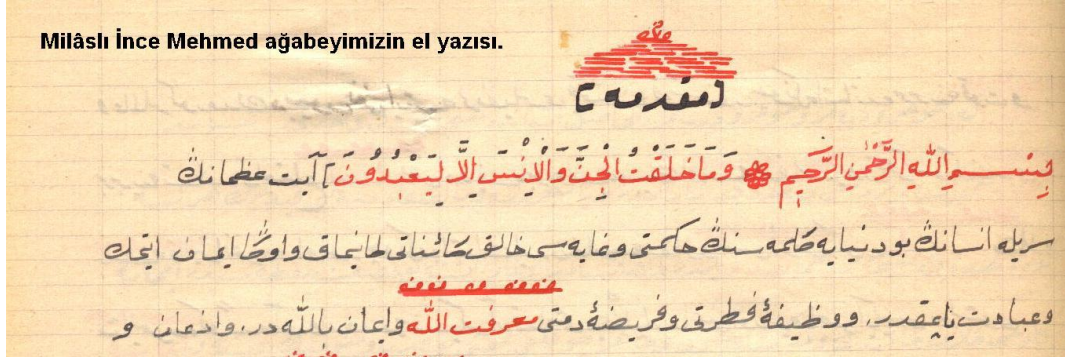 Milâslı İnce Mehmed ağabeyimizin el yazısı.
[مقدمه]
بِسْــــمِ اللّٰهِ الرَّحْمٰنِ الرَّحِيمِ ❁ وَمَا خَلَقْتُ الْجِنَّ وَالْاِنْسَ اِلَّا لِيَعْبُدُونَ] آیت عظمانڭ
سریله انسانڭ بو دنیایه كلمه سنڭ حكمتی و غایه سی خالق كائناتی طانیماق و اوڭا ایمان ایتمك
و عبادت یاپمقدر. و وظیفۀ فطرتی و فریضۀ ذمتی معرفت اللّٰه و ایمان باللّٰه در. و اذعان و